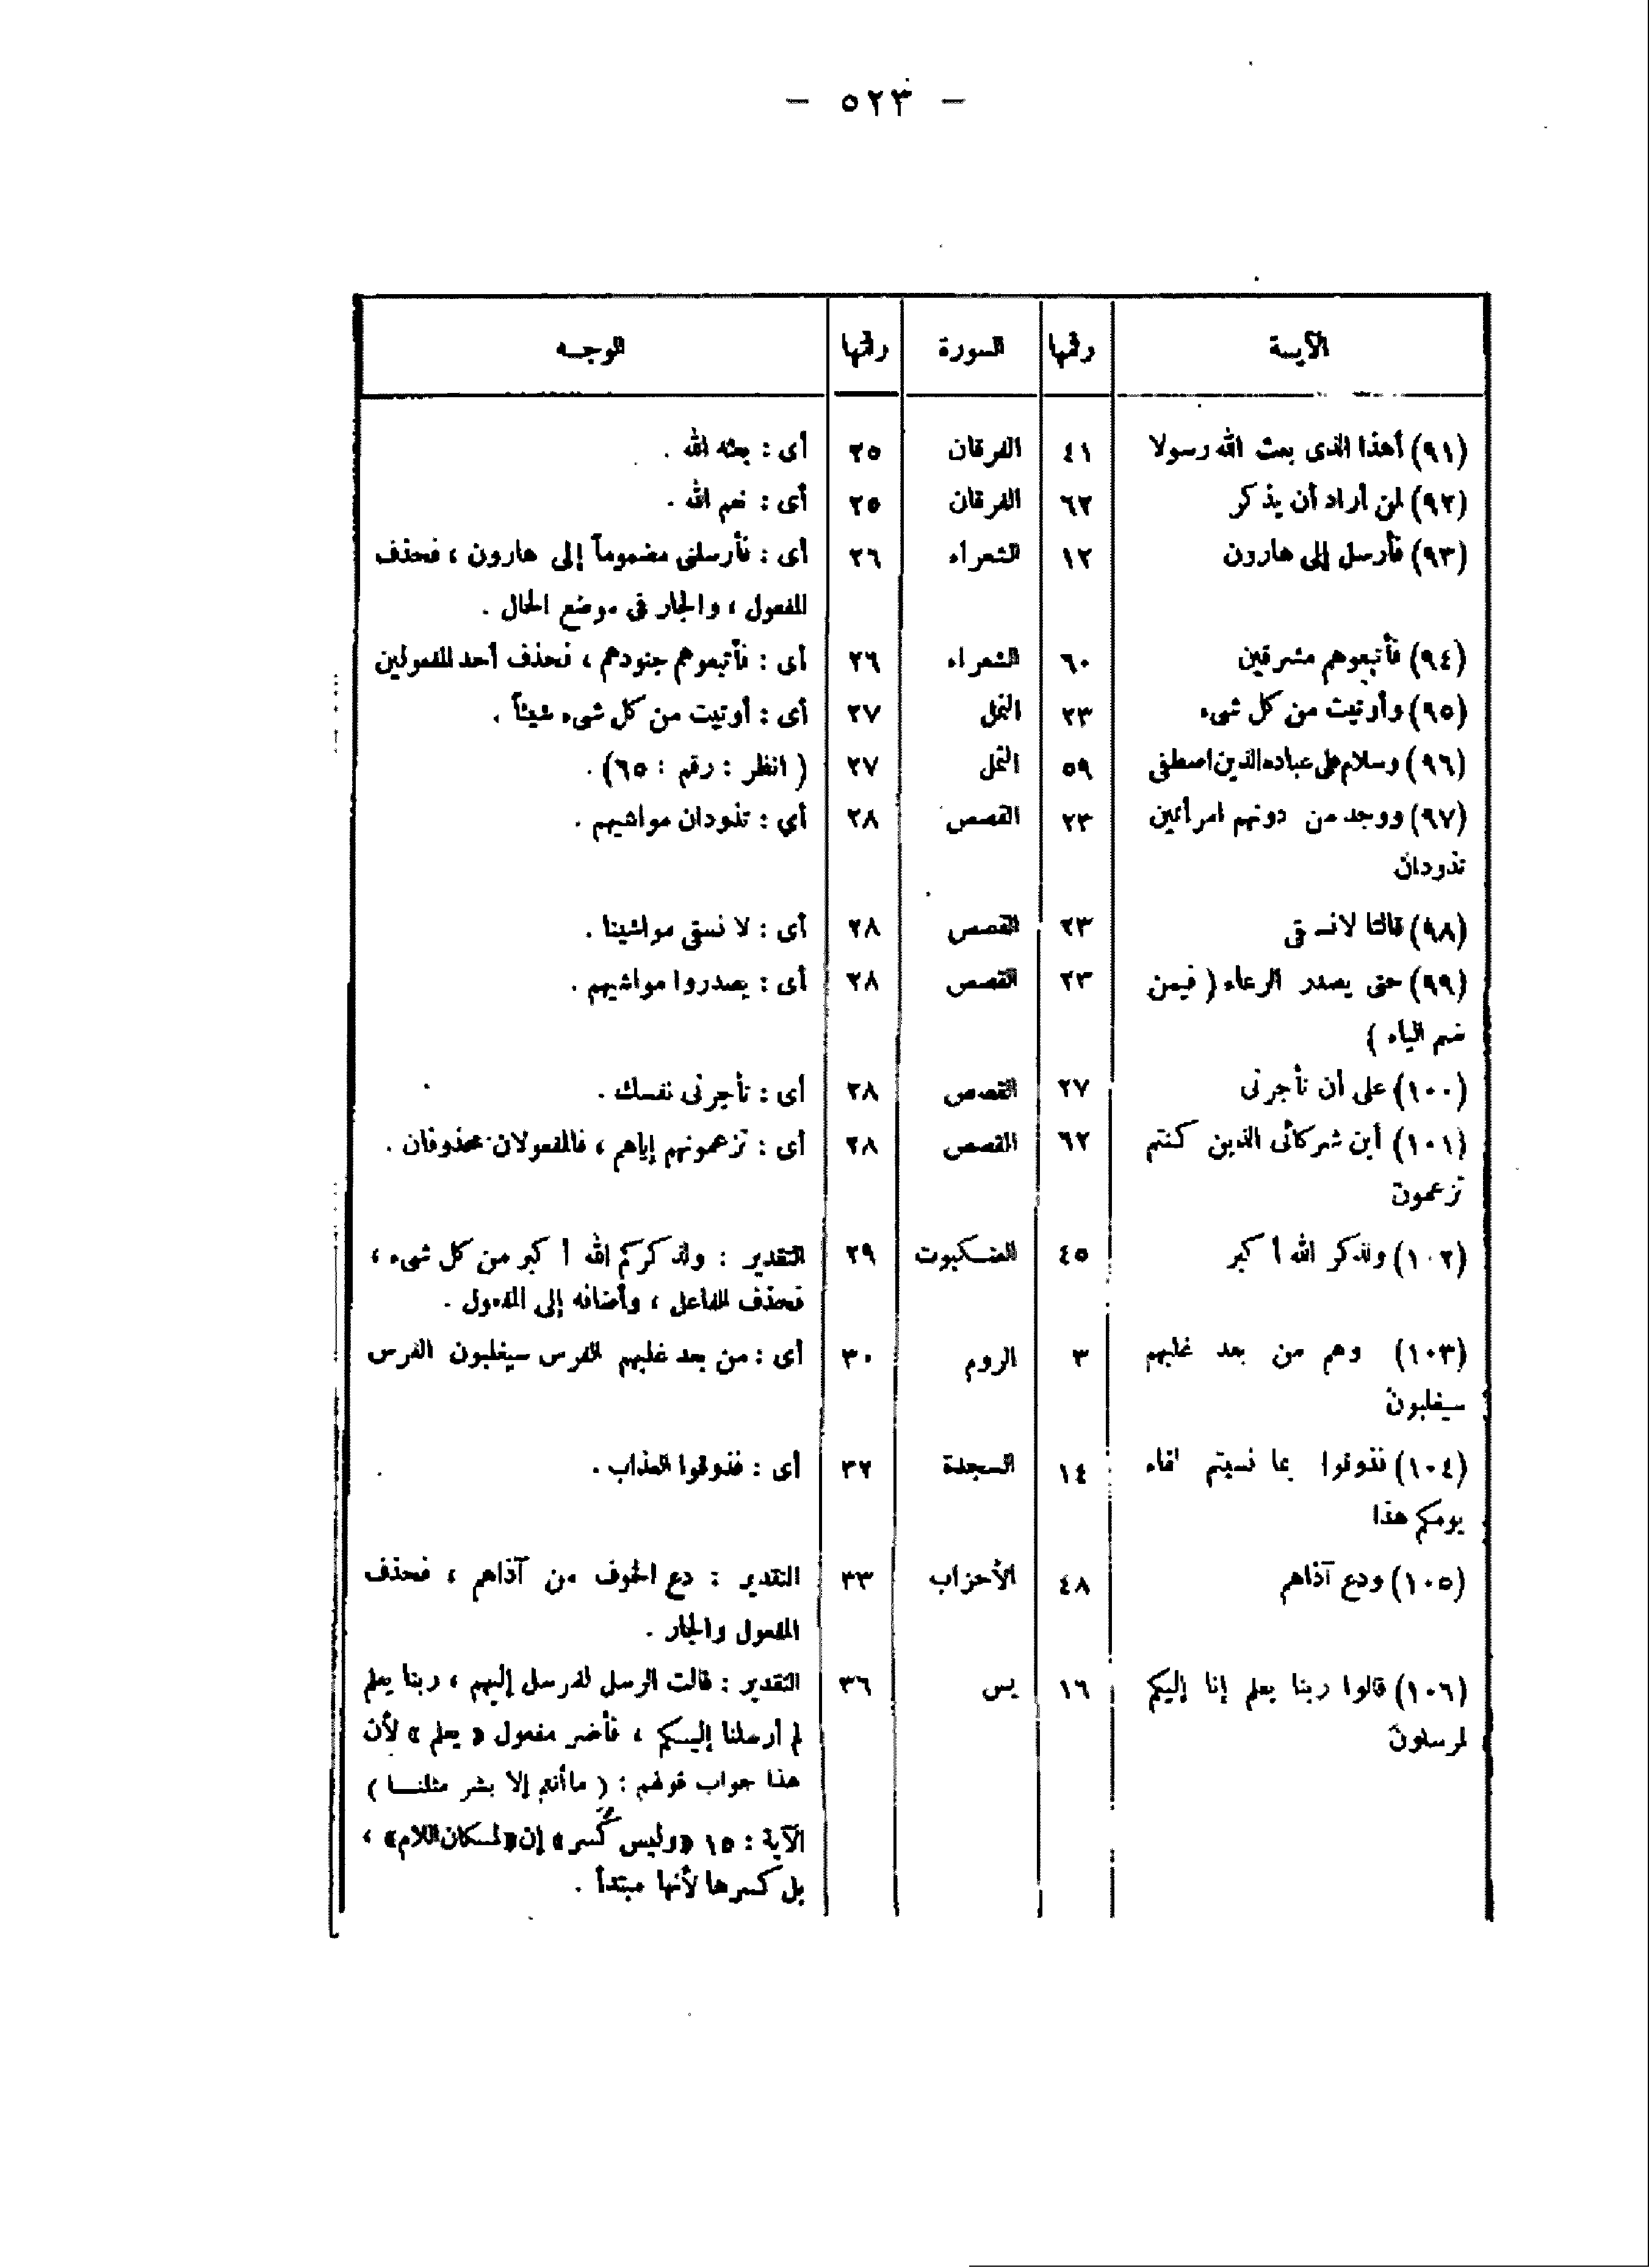 — ٥٢٣ —
الآيـة رقمها السورة رقمها الوجـه
(٩١) أهذا الذى بعث الله رسولا ٤١ الفرقان ٢٥ أى : بعثه الله .
(٩٢) لمن أراد أن يذكر ٦٢ الفرقان ٢٥ أى : نعم الله .
(٩٣) فأرسل إلى هارون ١٢ الشعراء ٢٦ أى : فأرسلنى مضموماً إلى هارون ، فحذف
المفعول ، والجار فى موضع الحال .
(٩٤) فأتبعوهم مشرقين ٦٠ الشعراء ٢٦ أى : فأتبعوهم جنودهم ، فحذف أحد المفعولين
(٩٥) وأوتيت من كل شىء ٢٣ النمل ٢٧ أى : أوتيت من كل شىء شيئاً .
(٩٦) وسلام على عباده الذين اصطفى ٥٩ النمل ٢٧ ( انظر : رقم : ٦٥) .
(٩٧) ووجد من دونهم امرأتين ٢٣ القصص ٢٨ أي : تذودان مواشيهم .
تذودان
(٩٨) قالتا لا نسـقى ٢٣ القصص ٢٨ أى : لا نسقى مواشينا .
(٩٩) حتى يصدر الرعاء ( فيمن ٢٣ القصص ٢٨ أى : يصدروا مواشيهم .
ضم الياء )
(١٠٠) على أن تأجرنى ٢٧ القصص ٢٨ أى : تأجرنى نفسك .
(١٠١) أين شركائى الذين كنتم ٦٢ القصص ٢٨ أى : تزعمونهم إياهم ، فالمفعولان محذوفان .
تزعمون
(١٠٢) ولذكر الله أكبر ٤٥ العنـكبوت ٢٩ التقدير : ولذكركم الله أكبر من كل شىء ،
فحذف الفاعل ، وأضافه إلى المفعول .
(١٠٣) وهم من بعد غلبهم ٣ الروم ٣٠ أى : من بعد غلبهم الفرس سيغلبون الفرس
سيغلبون
(١٠٤) فذوقوا بما نسيتم لقاء ١٤ السجدة ٣٢ أى : فذوقوا العذاب .
يومكم هذا
(١٠٥) ودع آذاهم ٤٨ الأحزاب ٣٣ التقدير : دع الخوف من آذاهم ، فحذف
المفعول والجار .
(١٠٦) قالوا ربنا يعلم إنا إليكم ١٦ يس ٣٦ التقدير : قالت الرسل للمرسل إليهم ، ربنا يعلم
لمرسلون
لم أرسلنا إليـكم ، فأضمر مفعول « يعلم » لأن
هذا جواب قولهم : ( ما أنتم إلا بشر مثلنـا )
الآية : ١٥ «وليس كُسر» إن«لمكان اللام» ،
بل كسرها لأنها مبتدأ .